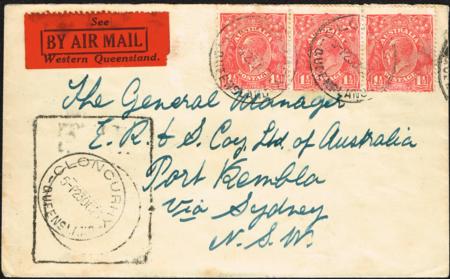 See
BY AIR MAIL
Western Queensland.
AUSTRALIA
AUSTRALIA
AUSTRALIA
1½ POSTAGE 1½
1½ POSTAGE 1½
1½ POSTAGE 1½
The General Manager
E. R & S. Coy. Ltd. of Australia
Port Kembla
Via Sydney
N. S. W.
CLONCURRY
QUEENSLAND